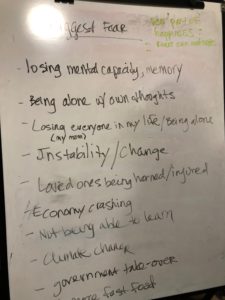 Biggest Fear
- losing mental capacity, memory
- Being alone w/ own thoughts
- Losing everyone in my life/Being alone
(my mom)
- Instability/Change
- Loved ones being harmed/injured
- Economy crashing
- Not being able to learn
- Climate change
- government take-over
fast food